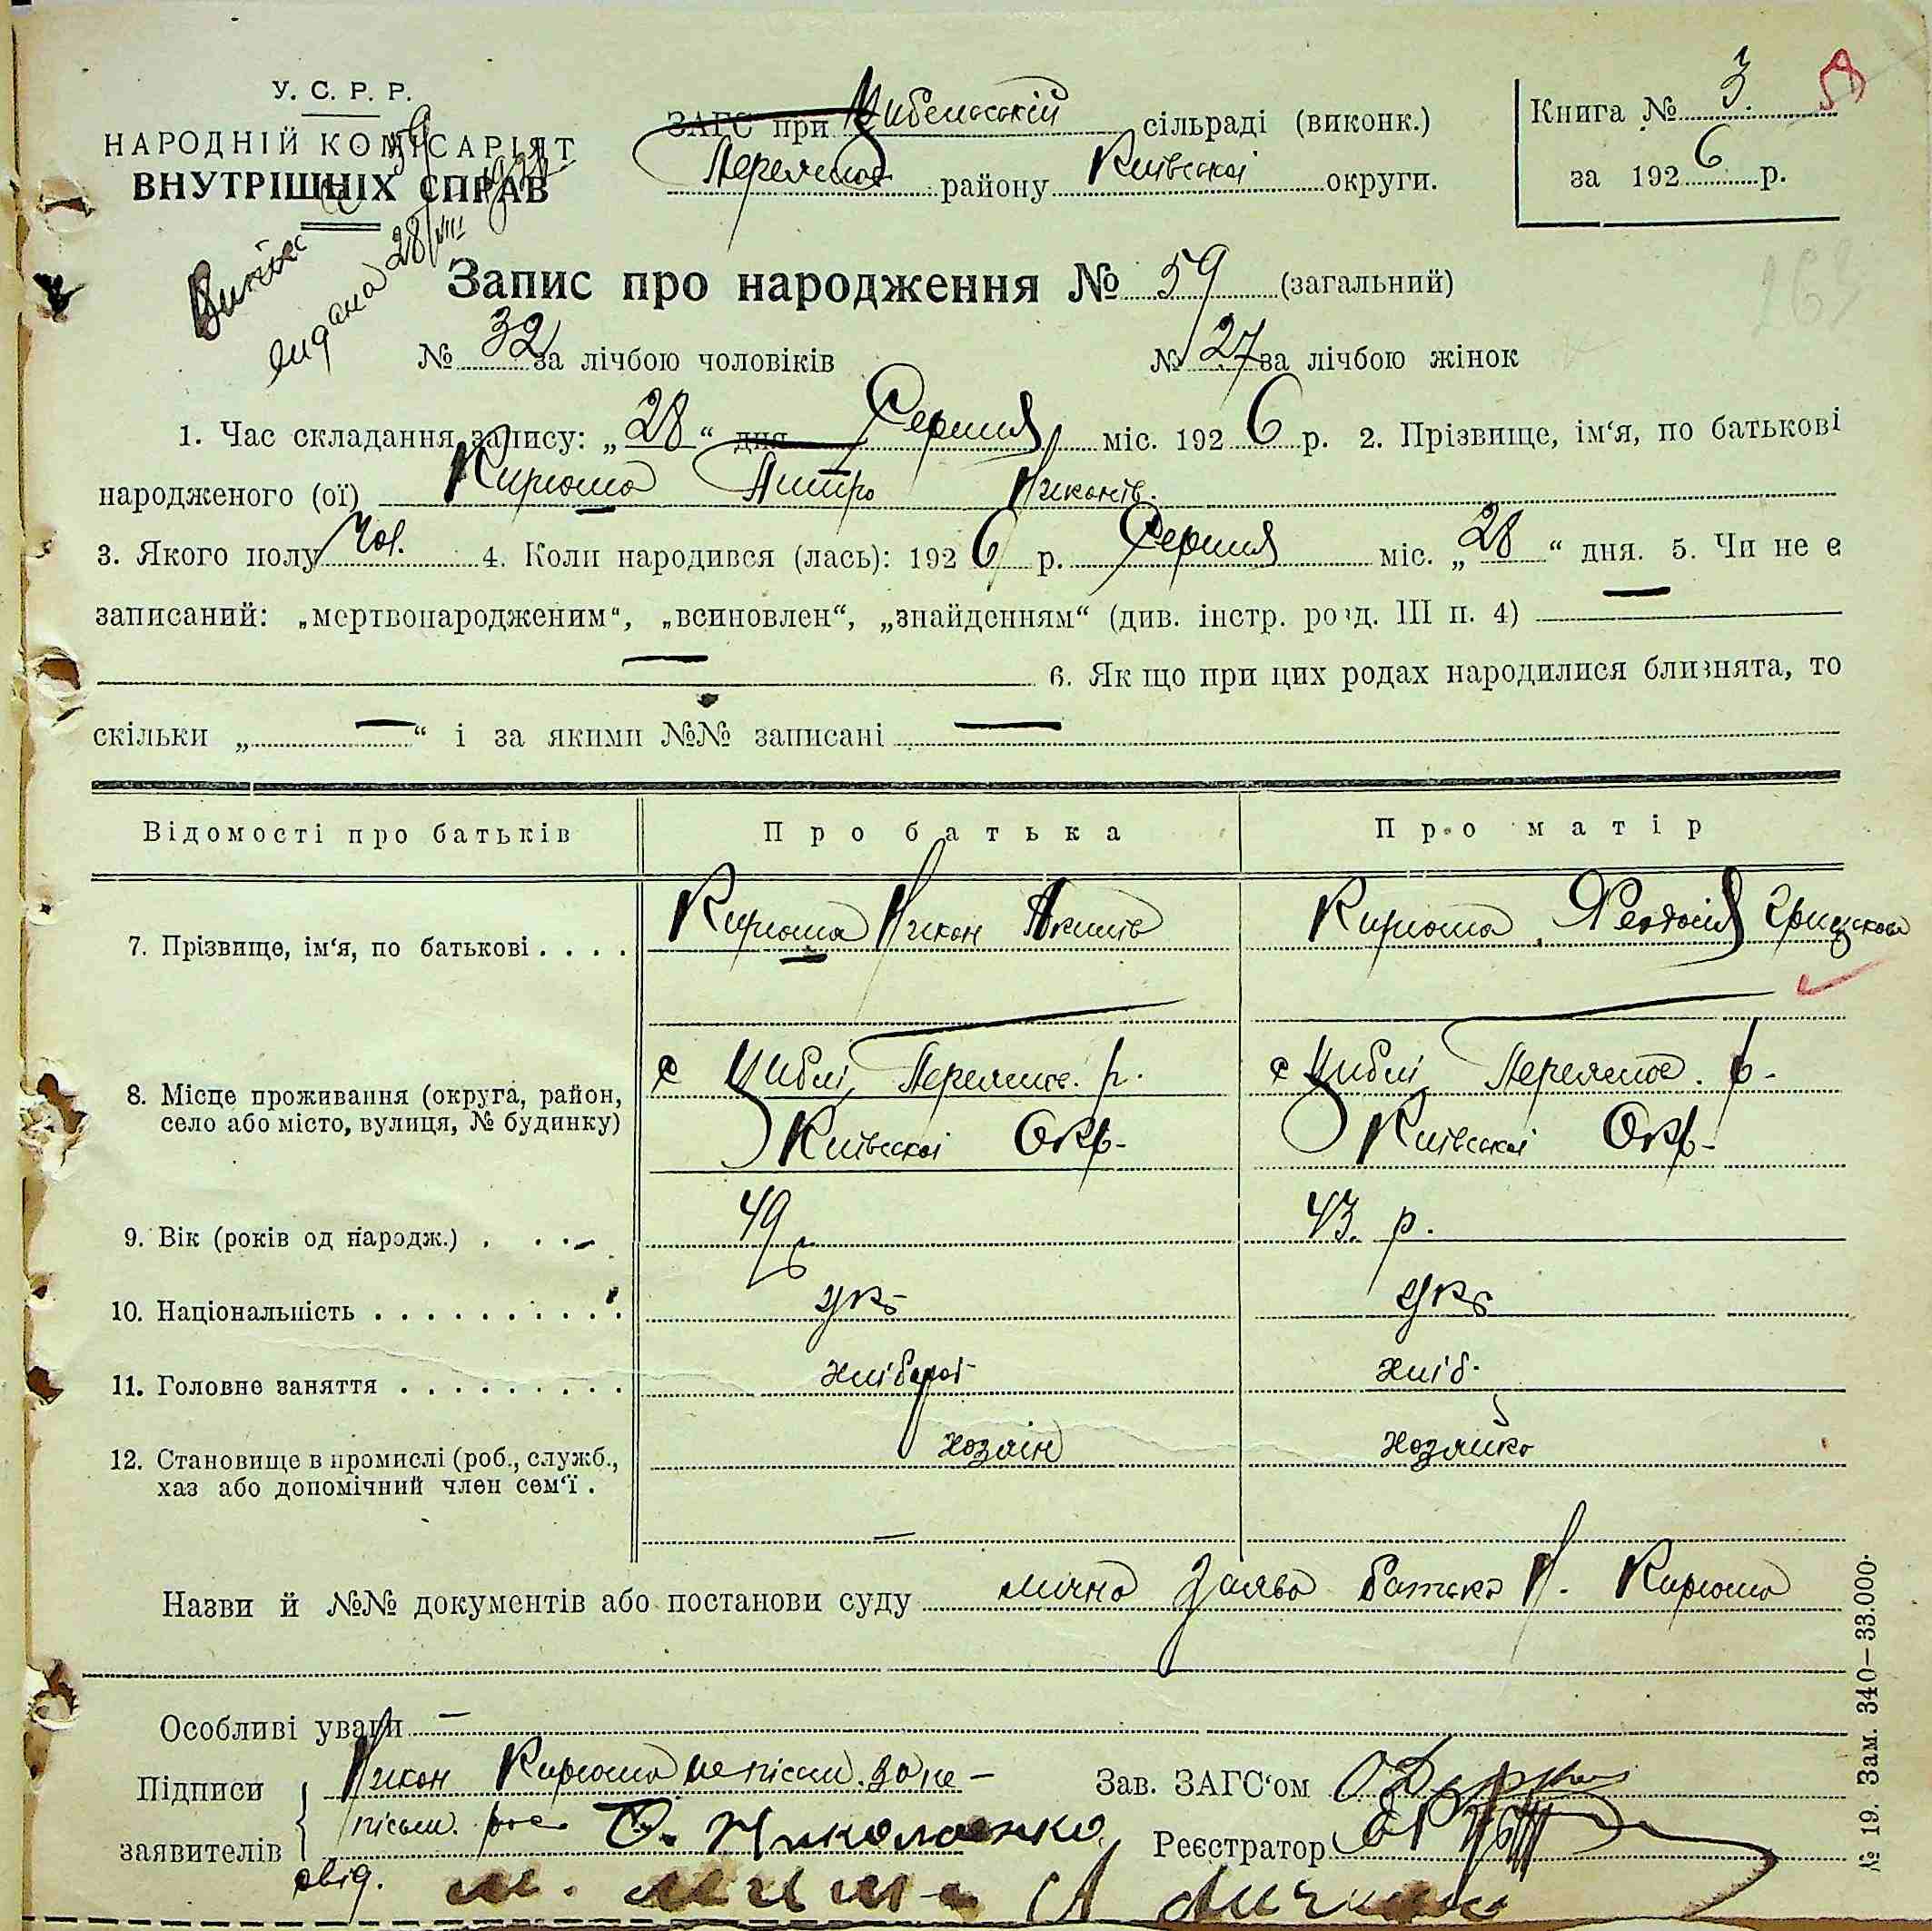 У. С. Р. Р.
НАРОДНІЙ КОМІСАРІЯТ
ВНУТРІШНІХ СПРАВ
ЗАГС при Цибельській сільраді (виконк.)
Переяслов району Київської округи.
Книга № 3.
за 1926 р.
Витяг
видана 28/VIII
Запис про народження № 59 (загальний)
№ 32 за лічбою чоловіків № 27 за лічбою жінок
1. Час складання запису: „28“ дня Серпня міс. 1926 р. 2. Прізвище, ім‘я, по батькові
народженого (ої) Кирюша Дмитро Никонів.
3. Якого полу Чол. 4. Коли народився (лась): 1926 р. Серпня міс. „28“ дня. 5. Чи не є
записаний: „мертвонародженим“, „всиновлен“, „знайденням“ (див. інстр. розд. III п. 4) —
— 6. Як що при цих родах народилися близнята, то
скільки „—“ і за якими №№ записані —
Відомості про батьків Про батька Про матір
7. Прізвище, ім‘я, по батькові . . . . Кирюша Никон Якимів Кирюша Феодосія Грицькова
8. Місце проживання (округа, район, с Циблі, Переяслов. р. с Циблі Переяслов. р-
село або місто, вулиця, № будинку) Київської Окр- Київської Окр-
9. Вік (років од народж.) . . . 49 р 43. р.
10. Національність . . . . . . . . . . укр укр
11. Головне заняття . . . . . . . . . хлібороб хліб.
12. Становище в промислі (роб., служб., хозяін хозяйка
хаз або допомічний член сем‘ї .
Назви й №№ документів або постанови суду лична заява батька Н. Кирюша
Особливі уваги —
Підписи Никон Кирюша не письм. за не- Зав. ЗАГС‘ом
заявителів письм. рос. Ніколаенко Реєстратор
свід.
№ 19. Зам. 340—33.000.